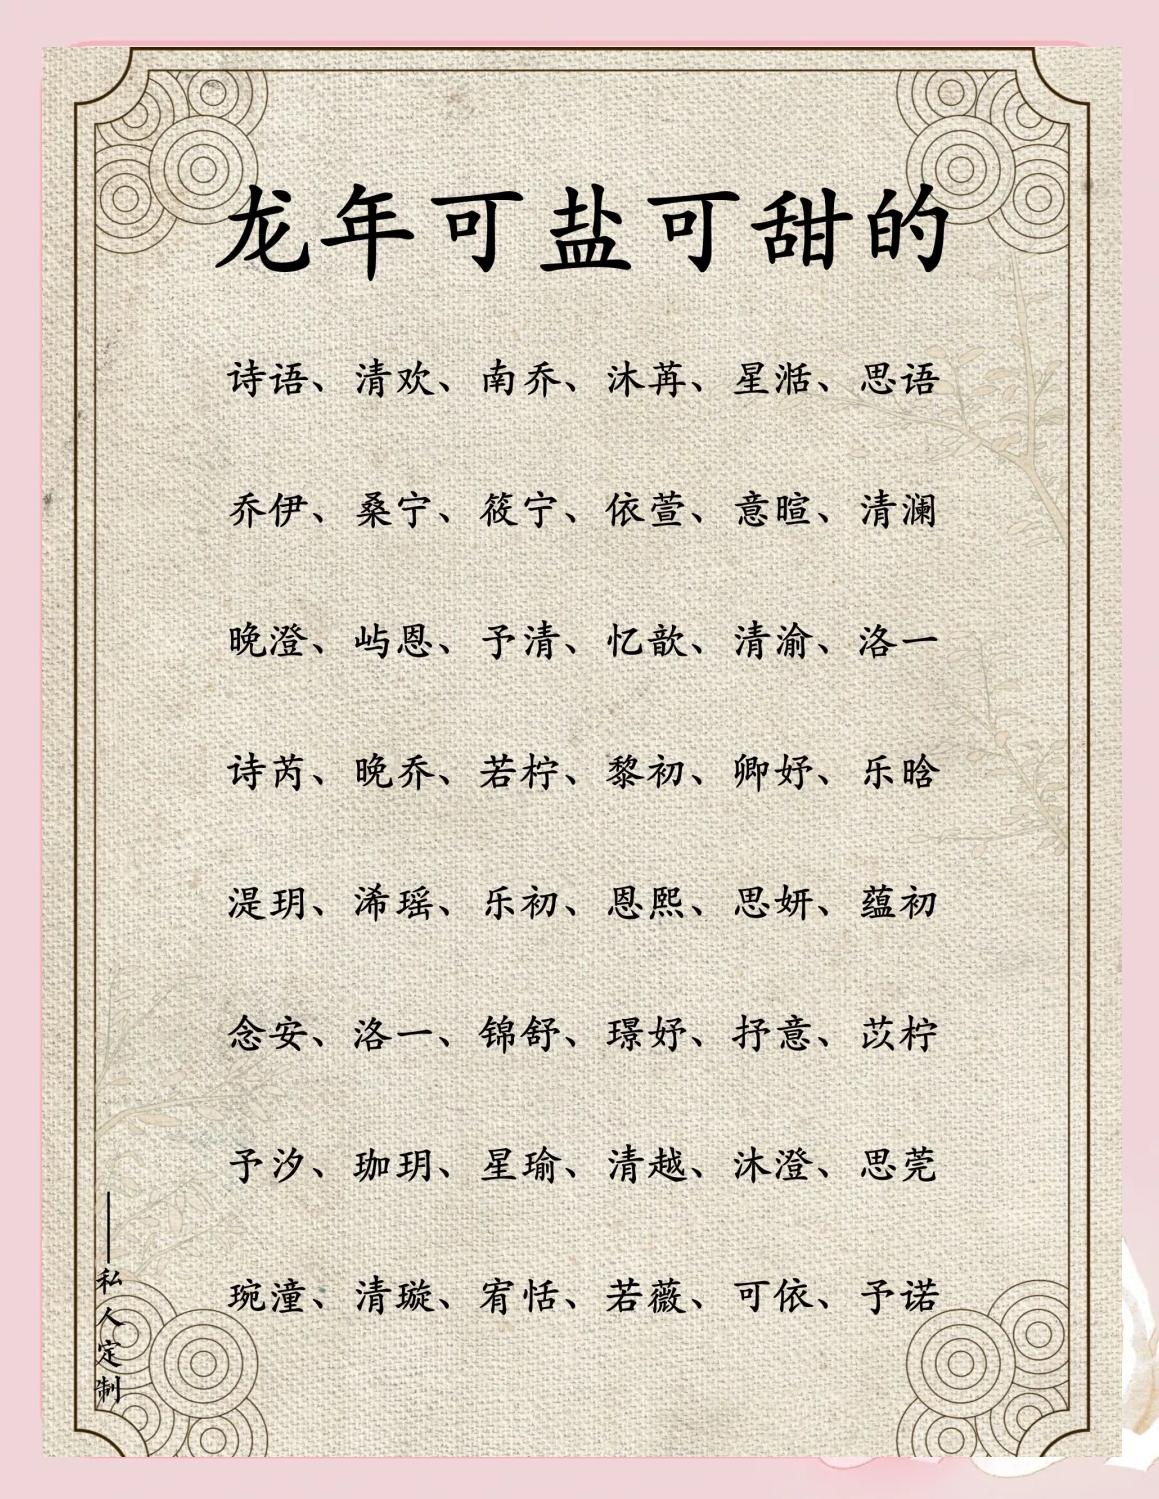 龙年可盐可甜的
诗语、清欢、南乔、沐苒、星湉、思语
乔伊、桑宁、筱宁、依萱、意暄、清澜
晚澄、屿恩、予清、忆歆、清渝、洛一
诗芮、晚乔、若柠、黎初、卿妤、乐晗
湜玥、浠瑶、乐初、恩熙、思妍、蕴初
念安、洛一、锦舒、璟妤、抒意、苡柠
予汐、珈玥、星瑜、清越、沐澄、思莞
琬潼、清璇、宥恬、若薇、可依、予诺
——私人定制